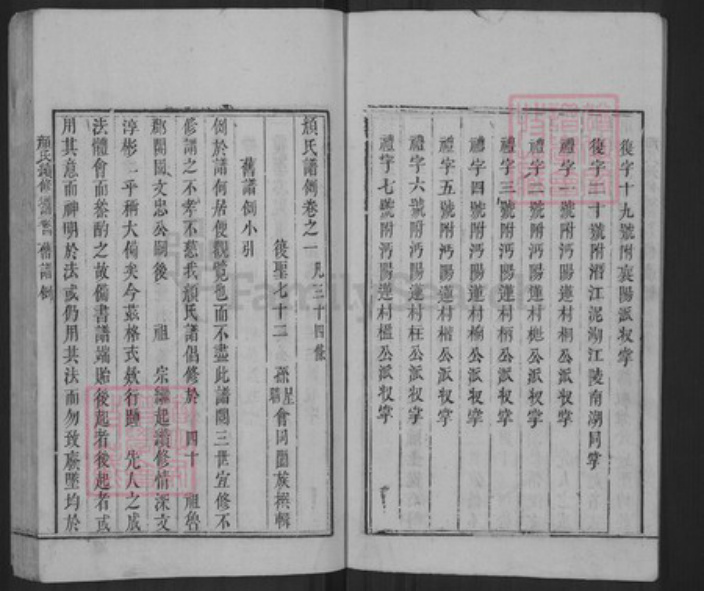 復字十九號附襄陽派收掌
復字二十號附潛江泥湖江陵南湖同掌
禮字一號附沔陽蓮村桐公派收掌
禮字二號附沔陽蓮村樾公派收掌
禮字三號附沔陽蓮村柄公派收掌
禮字四號附沔陽蓮村榆公派收掌
禮字五號附沔陽蓮村楷公派收掌
禮字六號附沔陽蓮村枉公派收掌
禮字七號附沔陽蓮村榲公派收掌
顏氏譜例卷之一 凡三十四條
復聖七十二 孫星 會同闔族撰輯
舊譜例小引
例於譜何居便觀覽也而不盡此譜閱三世宜修不
修謂之不孝不慈我顏氏譜倡修於 四十 祖魯
郡開國文忠公嗣後 祖 宗繼起續修情深文
淳彬彬乎稱大備矣今茲格式效行聽 先人之成
法體會而叅酌之故備書譜端貽後起者後起者或
用其意而神明於法或仍用其法而勿致廢墜均於
顏氏續修譜 舊譜例